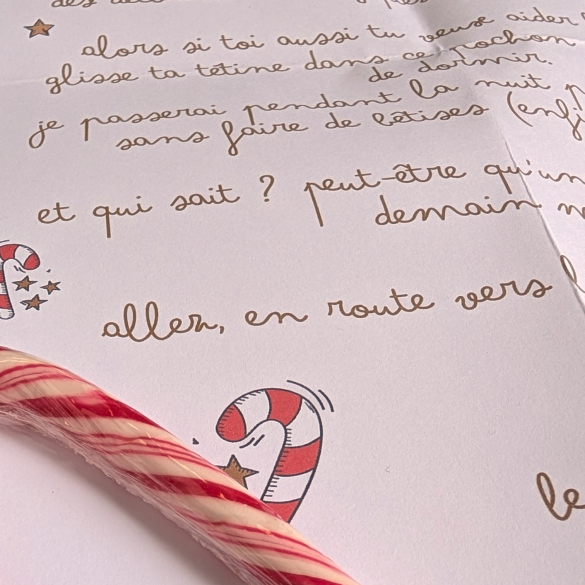 alors si toi aussi tu veux aider
glisse ta tétine dans ce pochon
de dormir.
je passerai pendant la nuit
sans faire de bêtises (enfi
et qui sait ? peut-être qu'un
demain
allez, en route vers
le